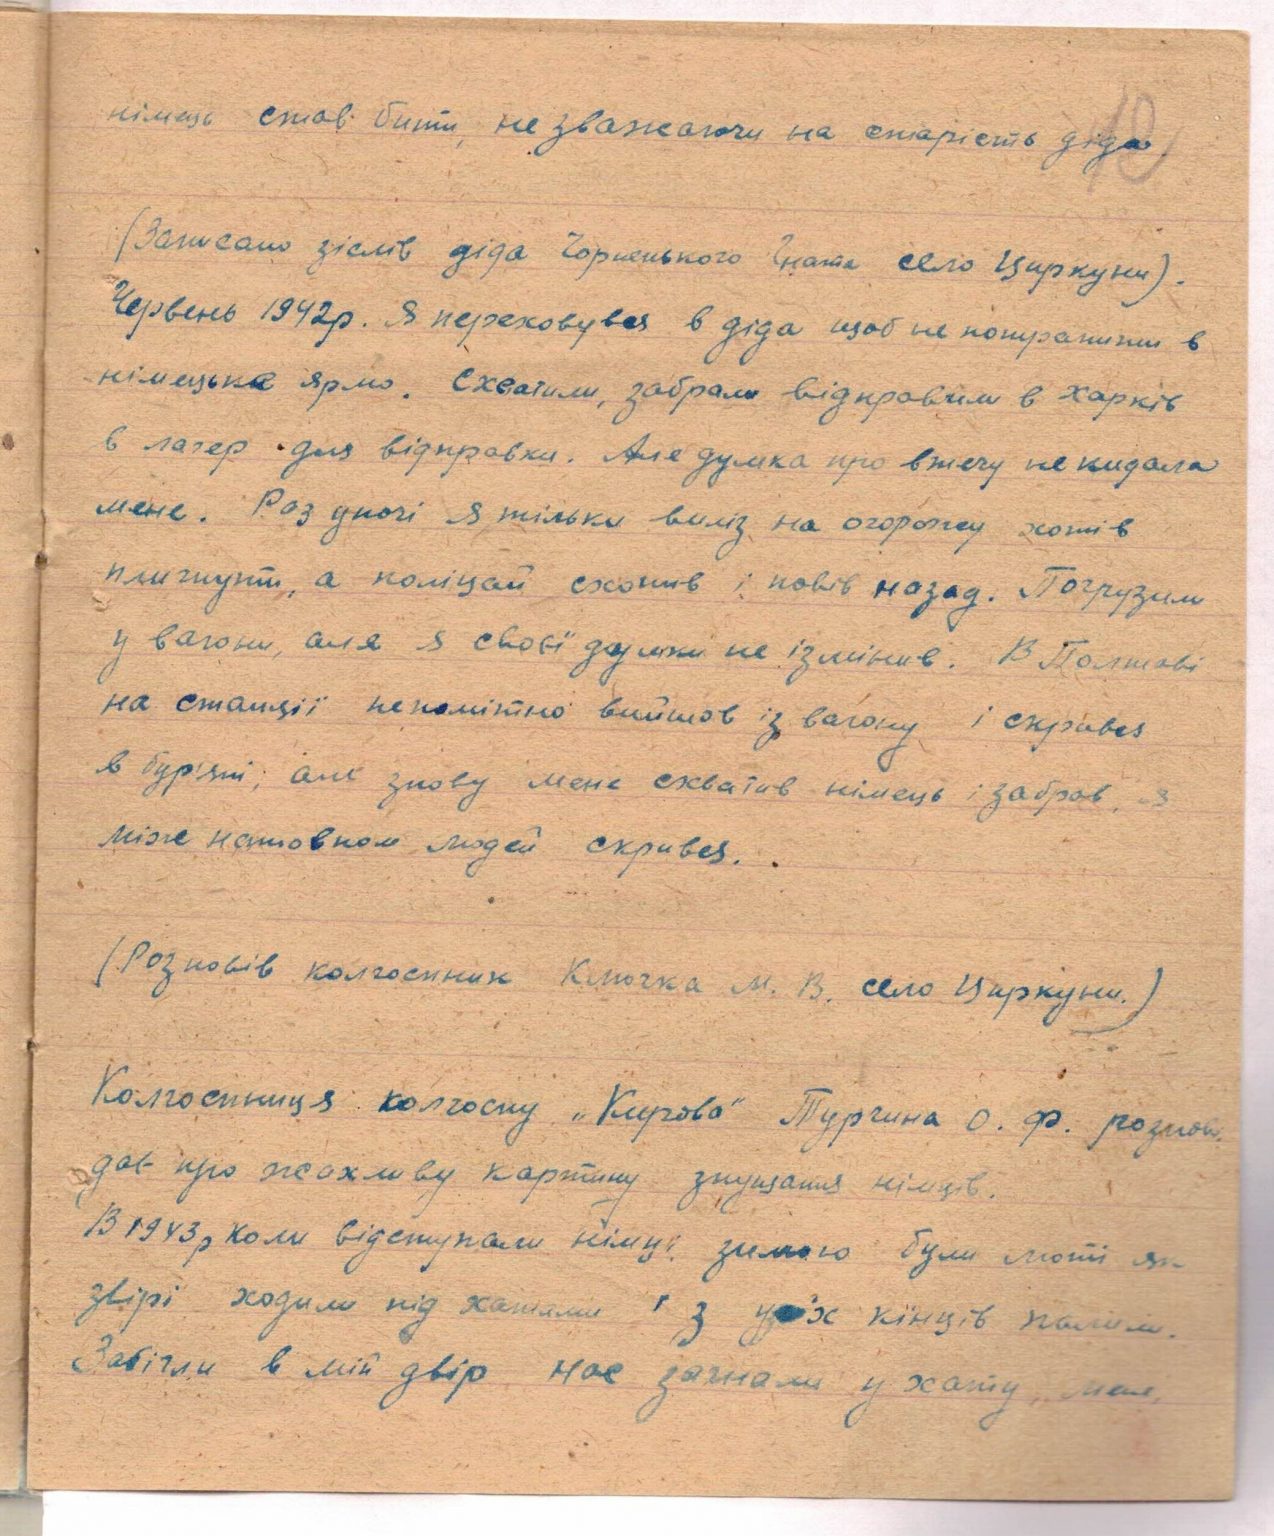 18
німець став бити, не зважаючи на старість діда.
(Записано зіслів діда Чорненького Гната село Циркуни).
Червень 1942р. Я переховувся в діда щоб не потрапити в
німецьке ярмо. Схватили, забрали відправили в Харків
в лагер для відправки. Але думка про втечу не кидала
мене. Раз уночі я тільки виліз на огорожу хотів
плигнути, а поліцай схопив і повів назад. Погрузили
у вагони, але я свої думки не ізмінив. В Полтаві
на станції непомітно вийшов із вагону і скрився
в бур'яні, але знову мене схватив німець і забрав, я
між натовпом людей скрився.
(Розповів колгоспник Клочка М. В. село Циркуни.)
Колгоспниця колгоспу „Кирова" Турчина О. Ф. розпові
дає про жахливу картину знущання німців.
В 1943р коли відступали німці зимою були люті як
звірі ходили під хатами і з усіх кінців палили.
Забігли в мій двір нас загнали у хату, мене,